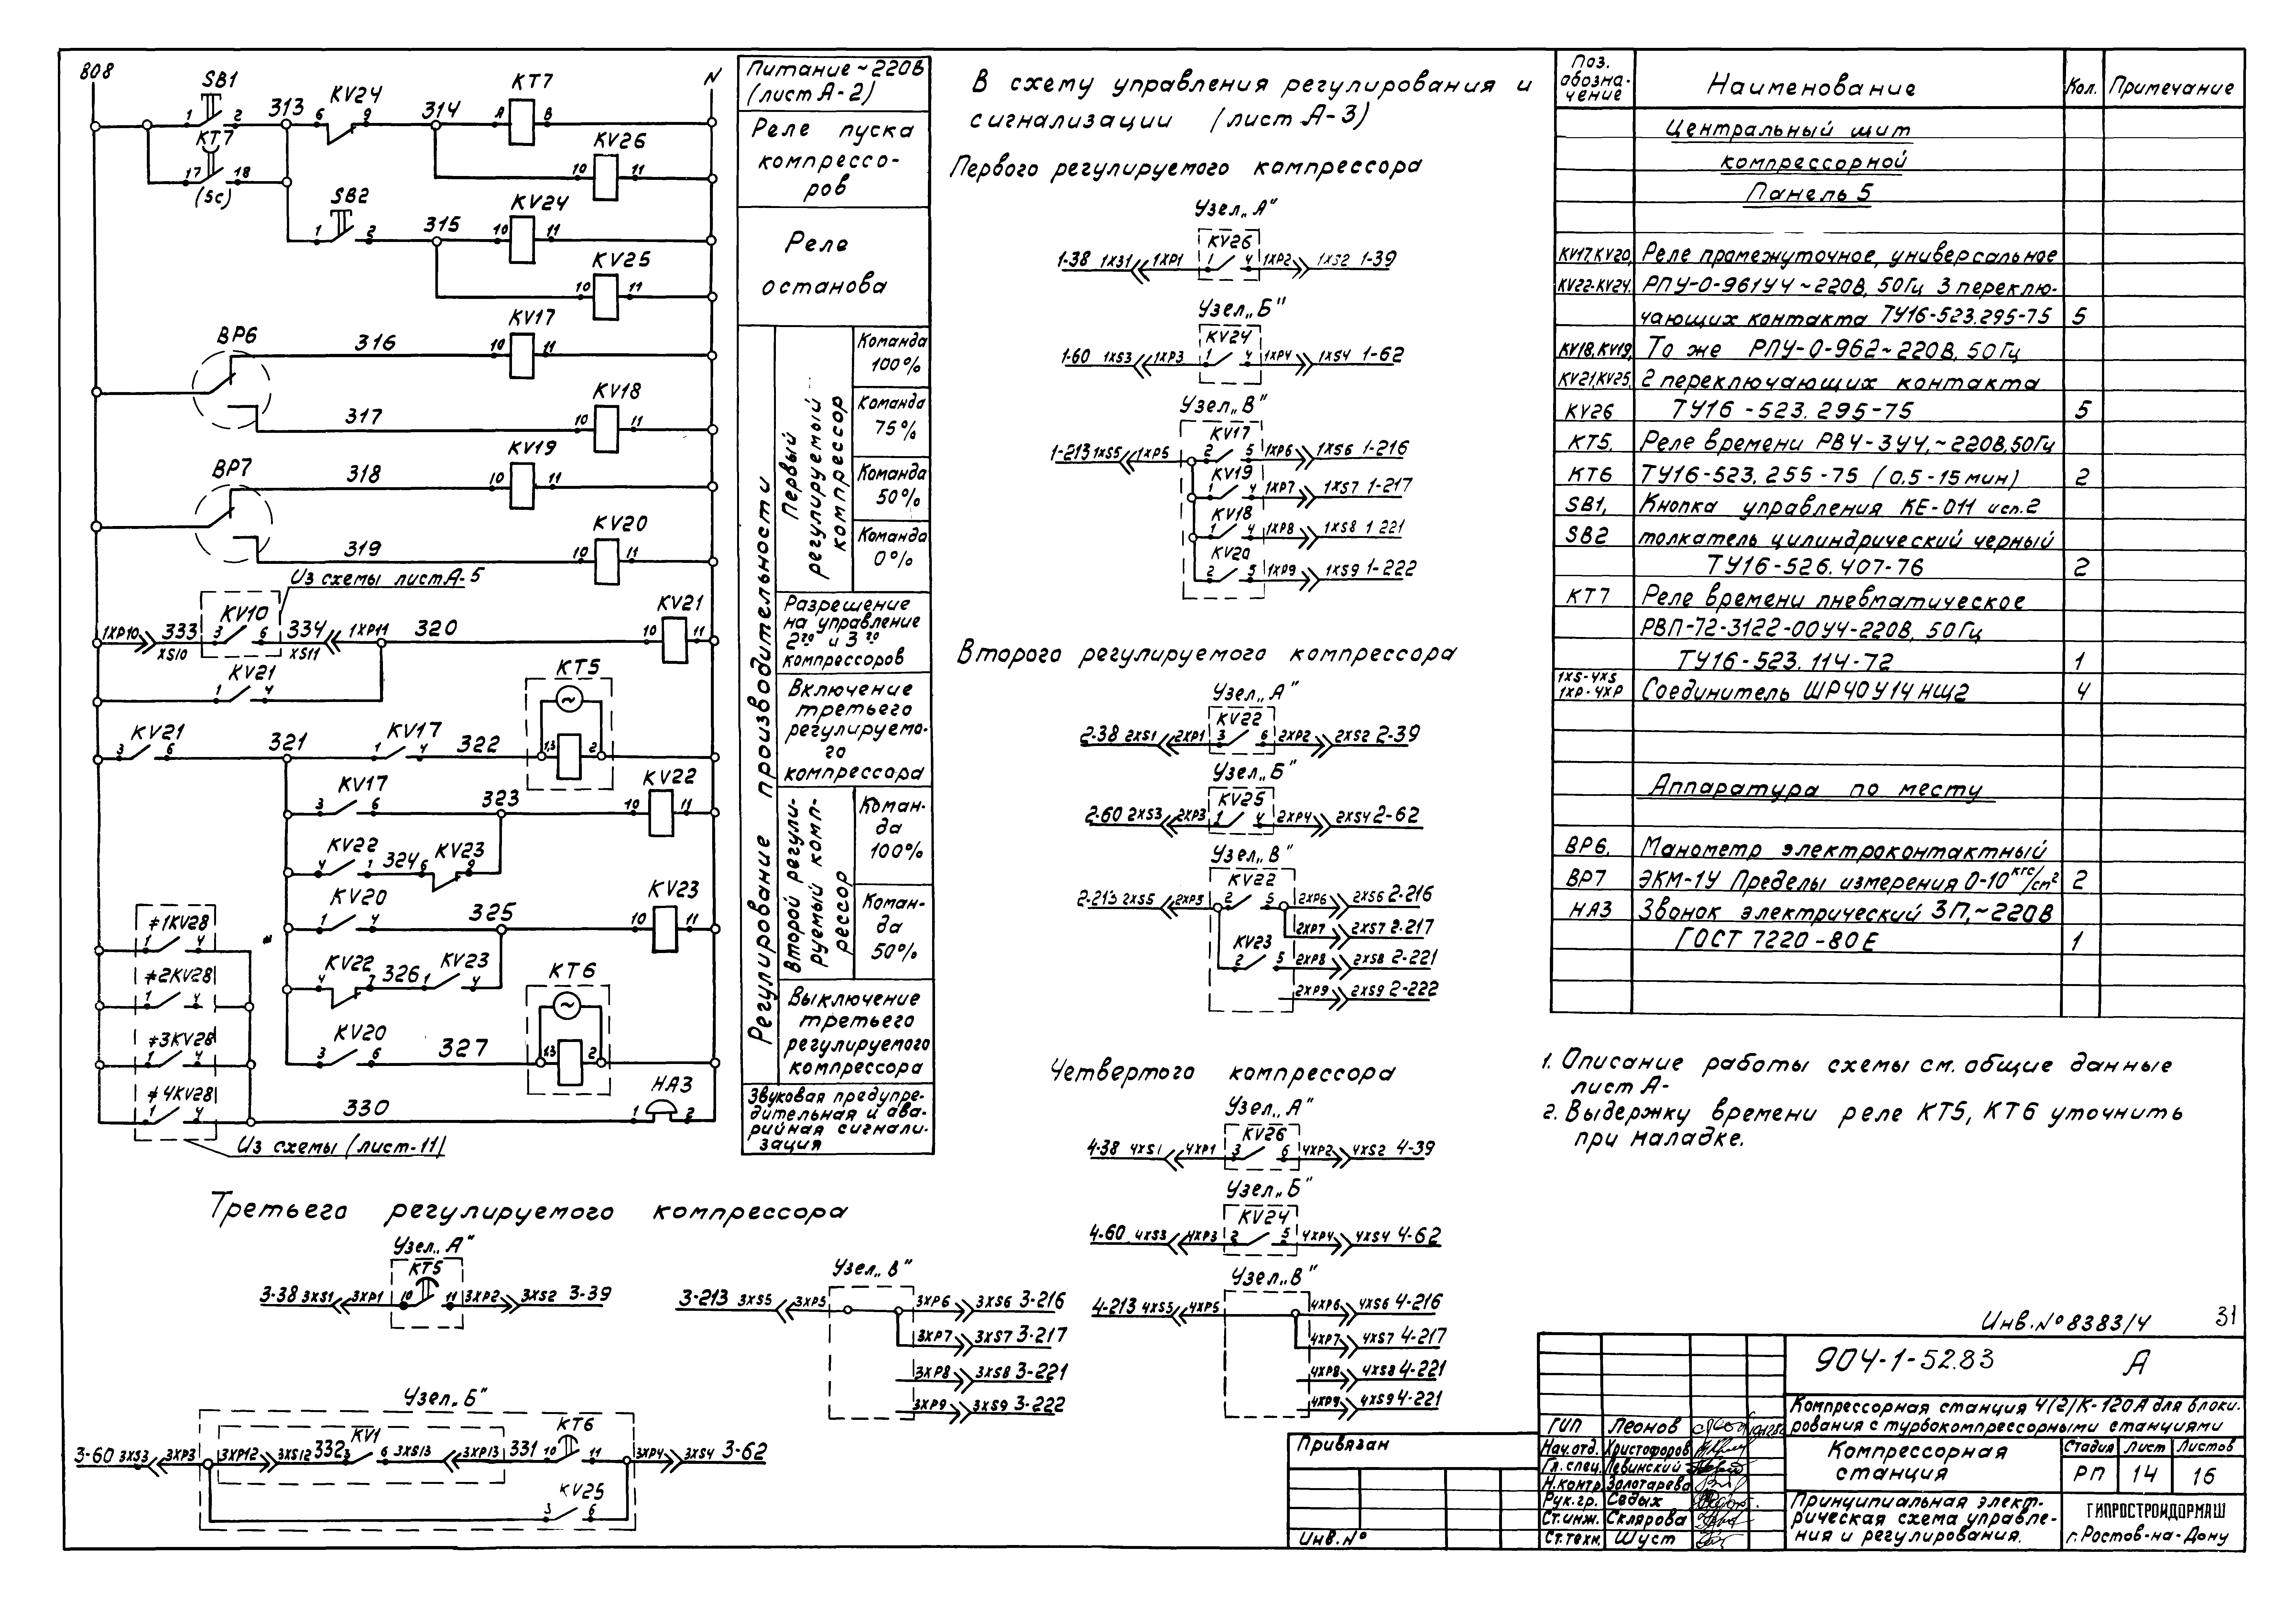 808
N
SB1
1
2
313
KV24
6
9
314
KT7
A
B
KT7
17
18
(5с)
KV26
10
11
SB2
1
2
315
KV24
10
11
KV25
10
11
BP6
316
KV17
10
11
317
KV18
10
11
BP7
318
KV19
10
11
319
KV20
10
11
Из схемы лист А-5
1XP10
XS10
333
KV10
3
6
334
XS11
1XP11
320
KV21
10
11
KV21
1
4
KV21
3
6
321
KV17
1
4
322
KT5
1,3
2
KV17
3
6
323
KV22
10
11
KV22
4
1
324
KV23
6
9
KV20
1
4
325
KV23
10
11
KV22
4
7
326
KV23
1
4
KT6
1,3
2
KV20
3
6
327
*1KV28
1
4
*2KV28
1
4
*3KV28
1
4
*4KV28
1
4
330
HA3
1
2
Из схемы (лист-11)
Питание ~220В
(лист А-2)
Реле пуска
компрессо-
ров
Реле
останова
Регулирование производительности
Первый
регулируемый
компрессор
Команда
100%
Команда
75%
Команда
50%
Команда
0%
Разрешение
на управление
2го и 3го
компрессоров
Включение
третьего
регулируемо-
го
компрессора
Второй регули-
руемый комп-
рессор
Коман-
да
100%
Коман-
да
50%
Выключение
третьего
регулируемого
компрессора
Звуковая предупре-
дительная и ава-
рийная сигнали-
зация
В схему управления регулирования и
сигнализации (лист А-3)
Первого регулируемого компрессора
Узел „А"
1-38 1XS1 1XP1
KV26
1
4
1XP2 1XS2 1-39
Узел „Б"
1-60 1XS3 1XP3
KV24
1
4
1XP4 1XS4 1-62
Узел „В"
1-213 1XS5 1XP5
KV17
2
5
1XP6 1XS6 1-216
KV19
1
4
1XP7 1XS7 1-217
KV18
1
4
1XP8 1XS8 1-221
KV20
2
5
1XP9 1XS9 1-222
Второго регулируемого компрессора
Узел „А"
2-38 2XS1 2XP1
KV22
3
6
2XP2 2XS2 2-39
Узел „Б"
2-60 2XS3 2XP3
KV25
1
4
2XP4 2XS4 2-62
Узел „В"
2-213 2XS5 2XP5
KV22
2
5
2XP6 2XS6 2-216
2XP7 2XS7 2-217
KV23
2
5
2XP8 2XS8 2-221
2XP9 2XS9 2-222
Четвертого компрессора
Узел „А"
4-38 4XS1 4XP1
KV26
3
6
4XP2 4XS2 4-39
Узел „Б"
4-60 4XS3 4XP3
KV24
2
5
4XP4 4XS4 4-62
Узел „В"
4-213 4XS5 4XP5
4XP6 4XS6 4-216
4XP7 4XS7 4-217
4XP8 4XS8 4-221
4XP9 4XS9 4-221
Третьего регулируемого компрессора
Узел „А"
3-38 3XS1 3XP1
KT5
10
11
3XP2 3XS2 3-39
Узел „В"
3-213 3XS5 3XP5
3XP6 3XS6 3-216
3XP7 3XS7 3-217
3XP8 3XS8 3-221
3XP9 3XS9 3-222
Узел „Б"
3-60 3XS3 3XP3
3XP12 3XS12 332
KV1
3
6
3XS13 3XP13 331
KT6
10
11
3XP4 3XS4 3-62
KV25
3
6
Поз. обозна-чение Наименование Кол. Примечание
Центральный щит
компрессорной
Панель 5
KV17,KV20, Реле промежуточное, универсальное
KV22-KV24, РПУ-0-961У4 ~220В, 50Гц 3 переклю-
чающих контакта ТУ16-523.295-75 5
KV18,KV19, То же РПУ-0-962~220В, 50Гц
KV21,KV25, 2 переключающих контакта
KV26 ТУ16-523.295-75 5
KT5, Реле времени РВ4-3У4,~220В,50Гц
KT6 ТУ16-523.255-75 (0,5-15мин) 2
SB1, Кнопка управления КЕ-011 исп.2
SB2 толкатель цилиндрический черный
ТУ16-526.407-76 2
KT7 Реле времени пневматическое
РВП-72-3122-00У4-220В, 50Гц
ТУ16-523.114-72 1
1XS-4XS
1XP-4XP Соединитель ШР40У14НЩ2 4
Аппаратура по месту
BP6, Манометр электроконтактный
BP7 ЭКМ-1У Пределы измерения 0-10кгс/см² 2
HA3 Звонок электрический ЗП,~220В
ГОСТ 7220-80Е 1
1. Описание работы схемы см. общие данные
лист А-
2. Выдержку времени реле КТ5, КТ6 уточнить
при наладке.
Инв.№8383/4
31
904-1-52.83 А
Компрессорная станция 4(2)К-120А для блоки-
рования с турбокомпрессорными станциями
Компрессорная
станция
Стадия Лист Листов
РП 14 16
Принципиальная элект-
рическая схема управле-
ния и регулирования.
ГИПРОСТРОЙДОРМАШ
г.Ростов-на-Дону
ГИП Леонов
Нач.отд. Христофоров
Гл.спец. Левинский
Н.контр. Золотарева
Рук.гр. Седых
Ст.инж. Склярова
Ст.техн. Шуст
Привязан
Инв.№